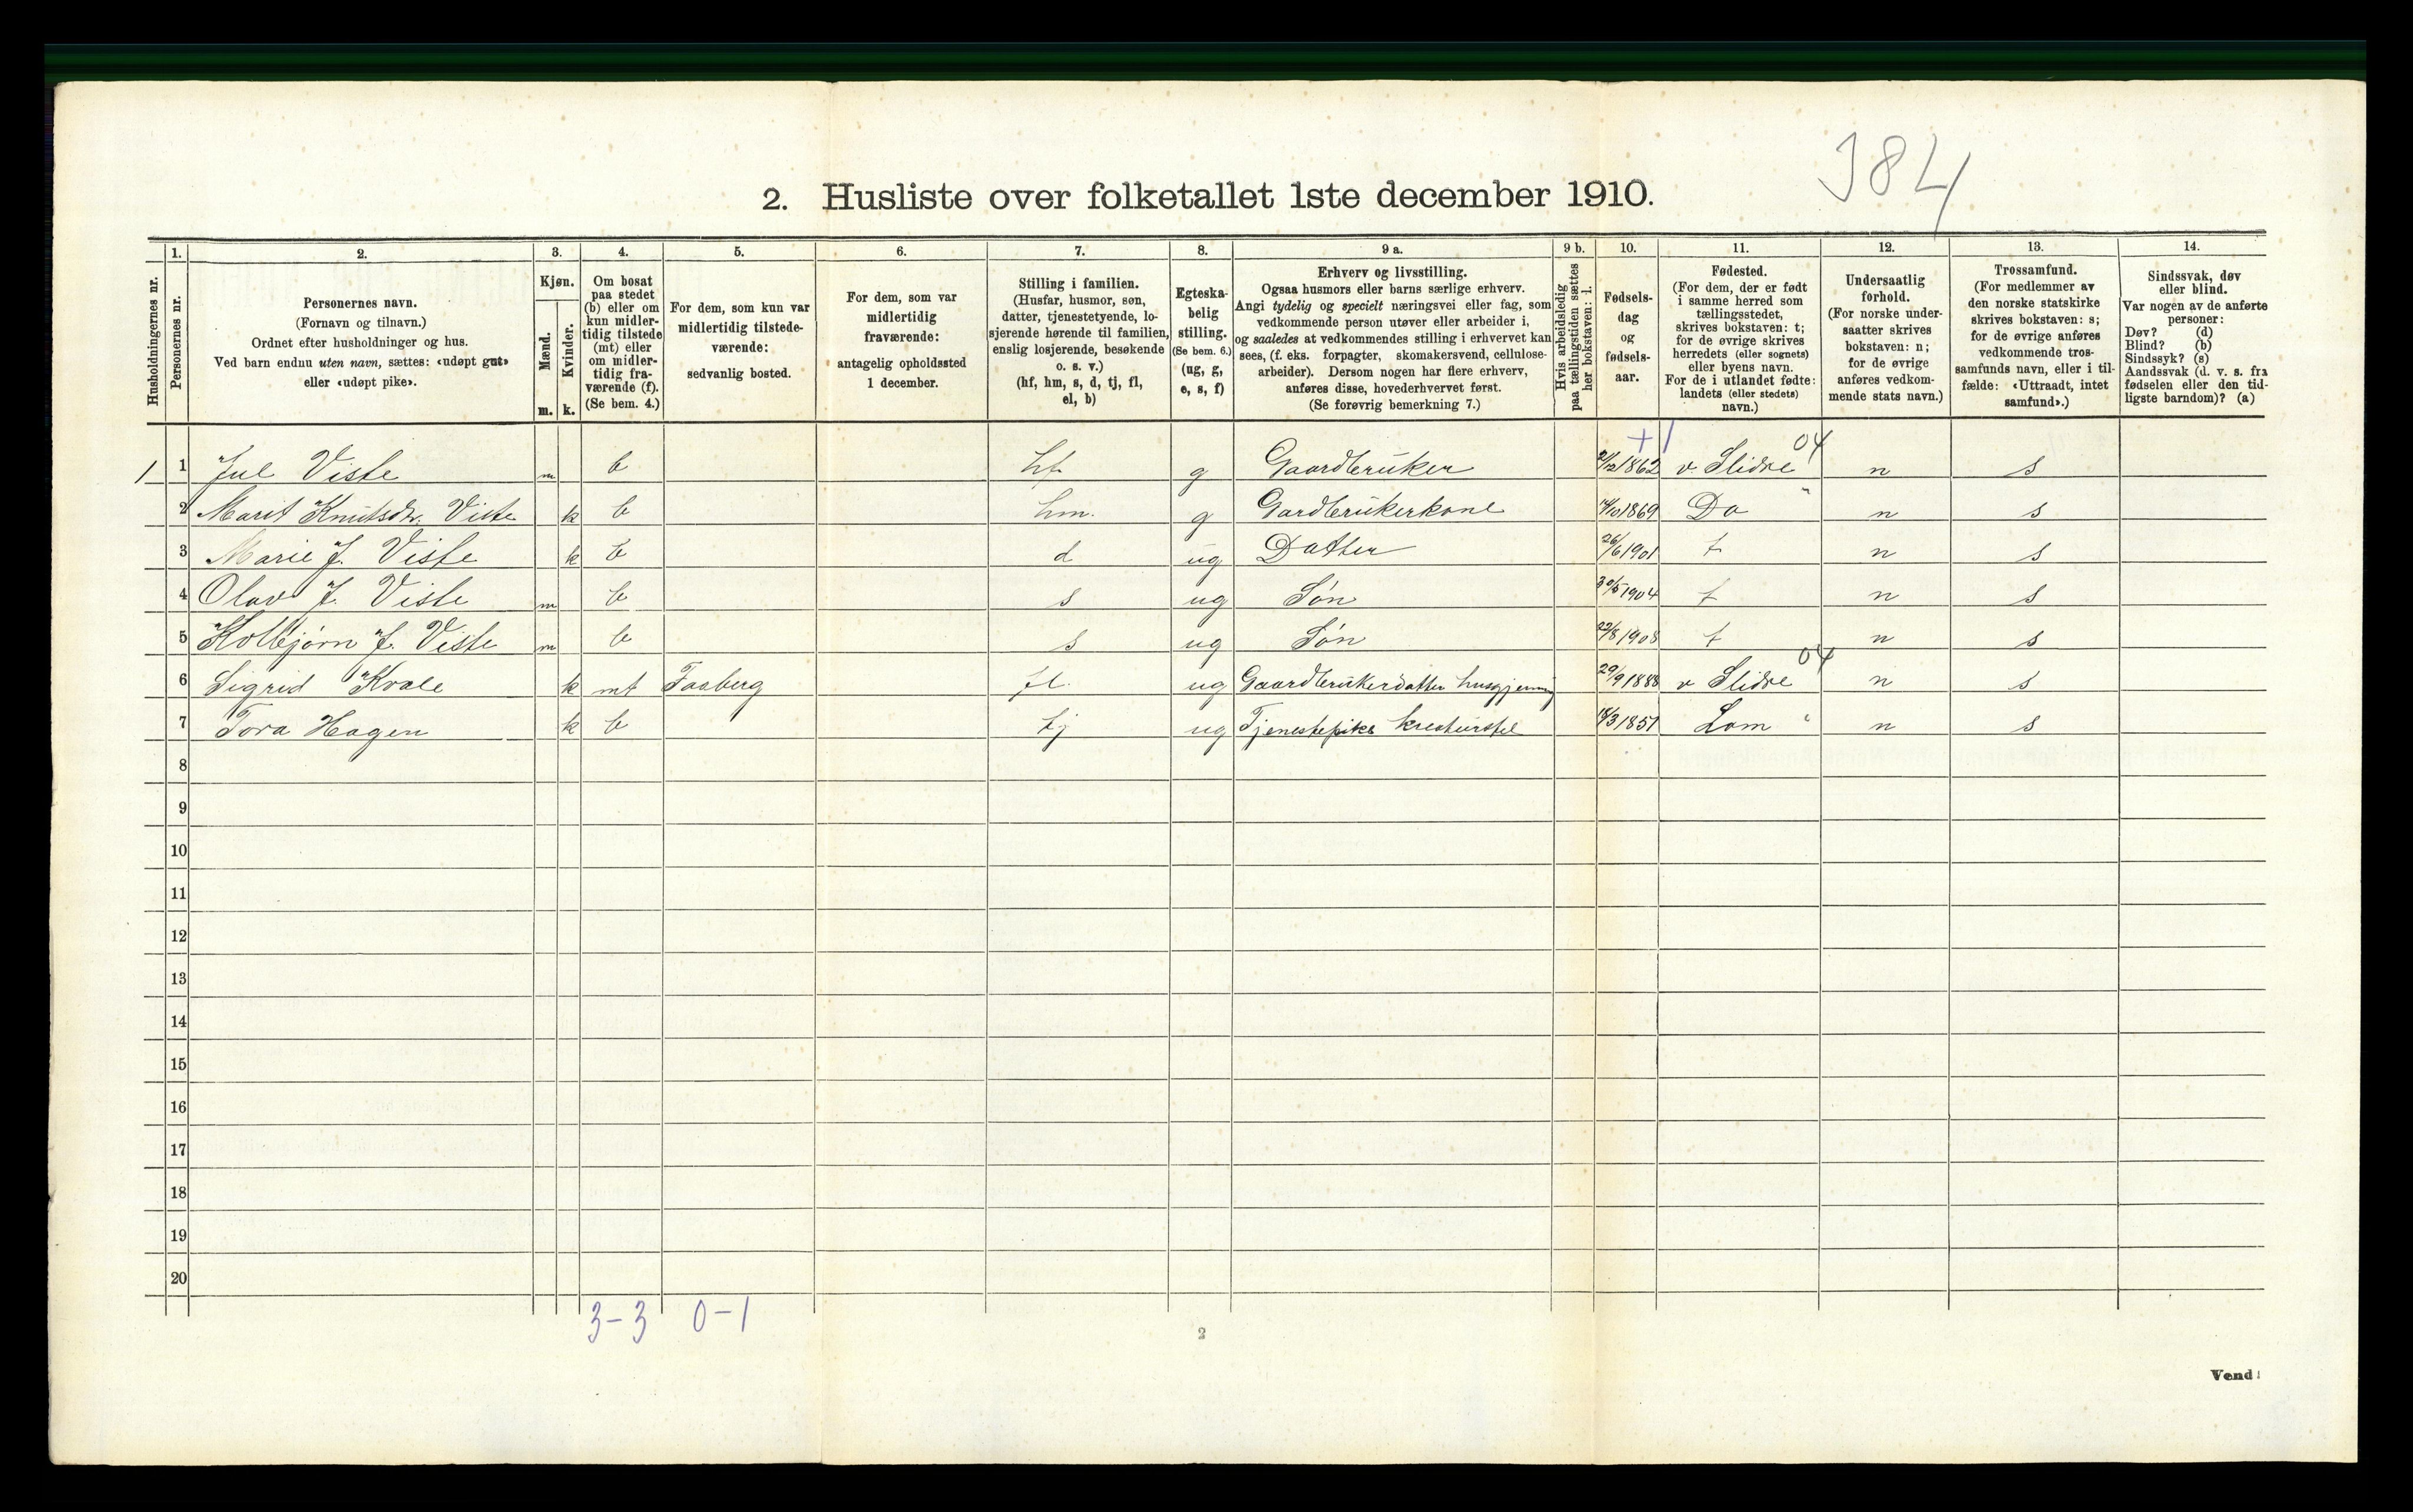 384
2. Husliste over folketallet 1ste december 1910.
Husholdningernes nr.
1. Personernes nr.
2. Personernes navn. (Fornavn og tilnavn.) Ordnet efter husholdninger og hus. Ved barn endnu uten navn, sættes: «udøpt gut» eller «udøpt pike».
3. Kjøn. Mænd. m. Kvinder. k.
4. Om bosat paa stedet (b) eller om kun midler-tidig tilstede (mt) eller om midler-tidig fra-værende (f). (Se bem. 4.)
5. For dem, som kun var midlertidig tilstede-værende: sedvanlig bosted.
6. For dem, som var midlertidig fraværende: antagelig opholdssted 1 december.
7. Stilling i familien. (Husfar, husmor, søn, datter, tjenestetyende, lo-sjerende hørende til familien, enslig losjerende, besøkende o. s. v.) (hf, hm, s, d, tj, fl, el, b)
8. Egteska-belig stilling. (Se bem. 6.) (ug, g, e, s, f)
9 a. Erhverv og livsstilling. Ogsaa husmors eller barns særlige erhverv. Angi tydelig og specielt næringsvei eller fag, som vedkommende person utøver eller arbeider i, og saaledes at vedkommendes stilling i erhvervet kan sees, (f. eks. forpagter, skomakersvend, cellulose-arbeider). Dersom nogen har flere erhverv, anføres disse, hovederhvervet først. (Se forøvrig bemerkning 7.)
9 b. Hvis arbeidsledig paa tællingstiden sættes her bokstaven: l.
10. Fødsels-dag og fødsels-aar.
11. Fødested. (For dem, der er født i samme herred som tællingsstedet, skrives bokstaven: t; for de øvrige skrives herredets (eller sognets) eller byens navn. For de i utlandet fødte: landets (eller stedets) navn.)
12. Undersaatlig forhold. (For norske under-saatter skrives bokstaven: n; for de øvrige anføres vedkom-mende stats navn.)
13. Trossamfund. (For medlemmer av den norske statskirke skrives bokstaven: s; for de øvrige anføres vedkommende tros-samfunds navn, eller i til-fælde: «Uttraadt, intet samfund».)
14. Sindssvak, døv eller blind. Var nogen av de anførte personer: Døv? (d) Blind? (b) Sindssyk? (s) Aandssvak (d. v. s. fra fødselen eller den tid-ligste barndom)? (a)
+1 04
1 1 Jul Viste m b hf g Gaardbruker 1862 v. Slidre n s
2 Marit Knutsdtr. Viste k b hm. g Gardbrukerkone 14/10 1869 Do " n s
3 Marie J. Viste k b d ug Datter 26/6 1901 t n s
4 Olav J. Viste m b s ug Søn 30/5 1904 t n s
5 Kolbjørn J. Viste m b s ug Søn 22/8 1908 t n s
04
6 Sigrid Kvale k mt Faaberg fl. ug Gaardbrukerdatter husgjerning 29/9 1888 v Slidre n s
7 Tora Hagen k b tj ug Tjenestepike kreaturstel 18/3 1851 Lom " n s
8
9
10
11
12
13
14
15
16
17
18
19
20
3-3 0-1
2
Vend!